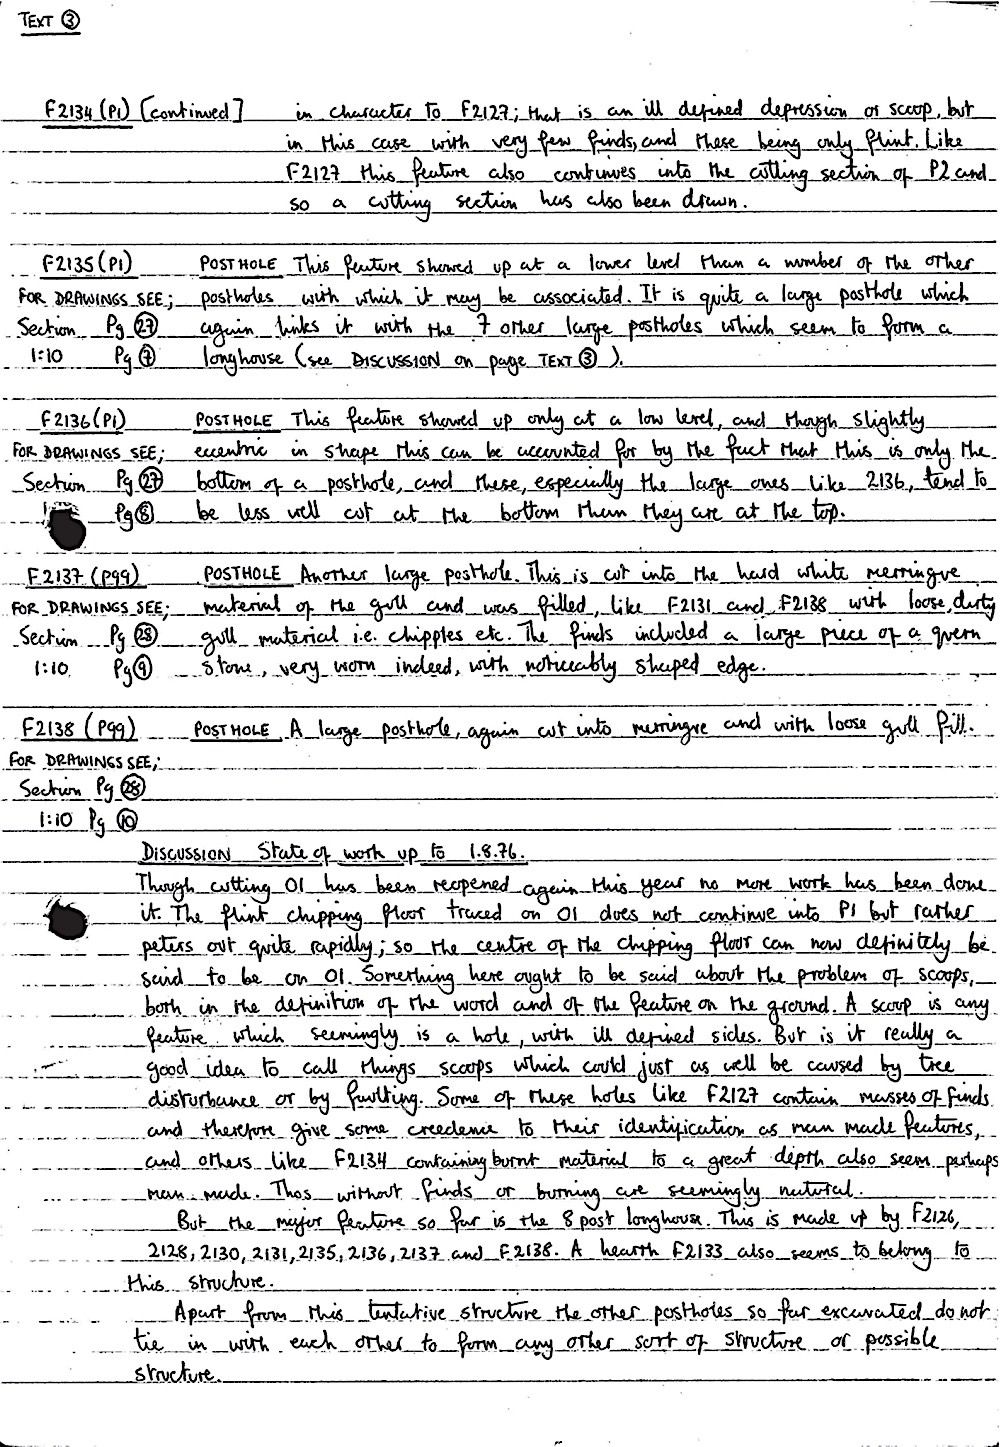 TEXT ③
F2134 (P1) [continued] in character to F2127; that is an ill defined depression or scoop, but
in this case with very few finds, and these being only flint. Like
F2127 this feature also continues into the cutting section of P2 and
so a cutting section has also been drawn.
F2135 (P1) POSTHOLE This feature showed up at a lower level than a number of the other
FOR DRAWINGS SEE; postholes with which it may be associated. It is quite a large posthole which
Section Pg ㉗ again links it with the 7 other large postholes which seem to form a
1:10 Pg ⑦ longhouse (see DISCUSSION on page TEXT ③ ).
F2136 (P1) POSTHOLE This feature showed up only at a low level, and though slightly
FOR DRAWINGS SEE; eccentric in shape this can be accounted for by the fact that this is only the
Section Pg ㉗ bottom of a posthole, and these, especially the large ones like 2136, tend to
Pg ⑧ be less well cut at the bottom than they are at the top.
F2137 (P99) POSTHOLE Another large posthole. This is cut into the hard white merringue
FOR DRAWINGS SEE; material of the gull and was filled, like F2131 and F2138 with loose, dirty
Section Pg ㉘ gull material i.e. chipples etc. The finds included a large piece of a quern
1:10 Pg ⑨ stone, very worn indeed, with noticeably shaped edge.
F2138 (P99) POSTHOLE A large posthole, again cut into merringue and with loose gull fill.
FOR DRAWINGS SEE;
Section Pg ㉘
1:10 Pg ⑩
DISCUSSION State of work up to 1.8.76.
Though cutting O1 has been reopened again this year no more work has been done
it. The flint chipping floor traced on O1 does not continue into P1 but rather
peters out quite rapidly; so the centre of the chipping floor can now definitely be
said to be on O1. Something here ought to be said about the problem of scoops,
both in the definition of the word and of the feature on the ground. A scoop is any
feature which seemingly is a hole, with ill defined sides. But is it really a
good idea to call things scoops which could just as well be caused by tree
disturbance or by faulting. Some of these holes like F2127 contain masses of finds
and therefore give some creedence to their identification as man made features,
and others like F2134 containing burnt material to a great depth also seem perhaps
man made. Thos without finds or burning are seemingly natural.
But the major feature so far is the 8 post longhouse. This is made up by F2126,
2128, 2130, 2131, 2135, 2136, 2137 and F2138. A hearth F2133 also seems to belong to
this structure.
Apart from this tentative structure the other postholes so far excavated do not
tie in with each other to form any other sort of structure or possible
structure.